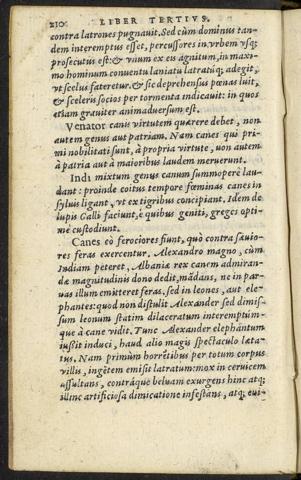 210. LIBER TERTIVS.
contra latrones pugnauit. Sed cùm dominus tan-
dem interemptus esset, percussores in vrbem vsq;
prosecutus est: & vnum ex eis agnitum, in maxi-
mo hominum conuentu laniatu latratúq; adegit,
vt scelus fateretur. & sic deprehensus pœnas luit,
& sceleris socios per tormenta indicauit: in quos
etiam grauiter animaduersum est.
Venator canis virtutem quærere debet, non
autem genus aut patriam. Nam canes qui pri-
mi nobilitati sunt, à propria virtute, non autem
à patria aut à maioribus laudem meruerunt.
Indi mixtum genus canum summoperè lau-
dant: proinde coitus tempore fœminas canes in
syluis ligant, vt ex tigribus concipiant. Idem de
lupis Galli faciunt, è quibus geniti, greges opti-
mè custodiunt.
Canes eò ferociores fiunt, quò contra sæuio-
res feras exercentur. Alexandro magno, cùm
Indiam peteret, Albaniæ rex canem admiran-
dæ magnitudinis dono dedit, mãdans, ne in par-
uas illum emitteret feras, sed in leones, aut ele-
phantes: quod non distulit Alexander sed dimis-
sum leonum statim dilaceratum interemptúm-
que à cane vidit. Tunc Alexander elephántum
iussit induci, haud alio magis spectaculo læta-
tus. Nam primùm horrẽtibus per totum corpus
villis, ingẽtem emisit latratum: mox in ceruicem
assultans, contráque beluam exurgens hinc atq;
illinc artificiosa dimicatione infestans, atq; eui-